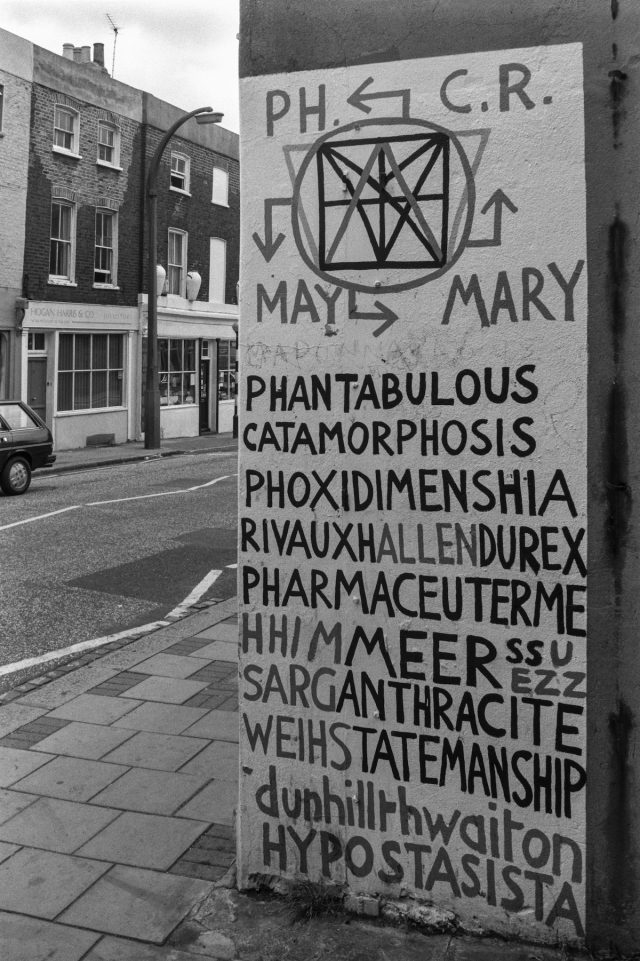 PH. C.R.
MAY MARY
PHANTABULOUS
CATAMORPHOSIS
PHOXIDIMENSHIA
RIVAUXHALLENDUREX
PHARMACEUTERME
HHIMMEER SSU
EZZ
SARGANTHRACITE
WEIHSTATEMANSHIP
dunhillthwaiton
HYPOSTASISTA
HOGAN HARRIS & CO.